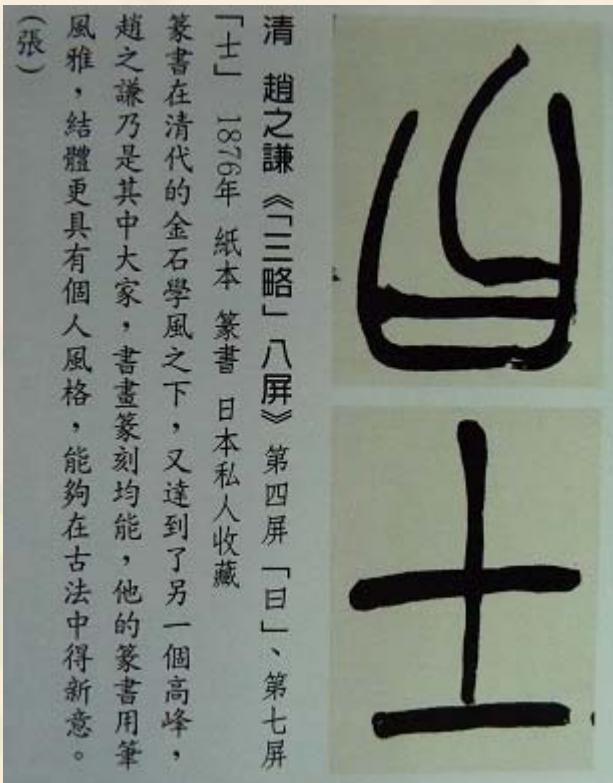 曰
士
清 趙之謙《「三略」八屏》第四屏「曰」、第七屏
「士」 1876年 紙本 篆書 日本私人收藏
篆書在清代的金石學風之下，又達到了另一個高峰，
趙之謙乃是其中大家，書畫篆刻均能，他的篆書用筆
風雅，結體更具有個人風格，能夠在古法中得新意。
（張）